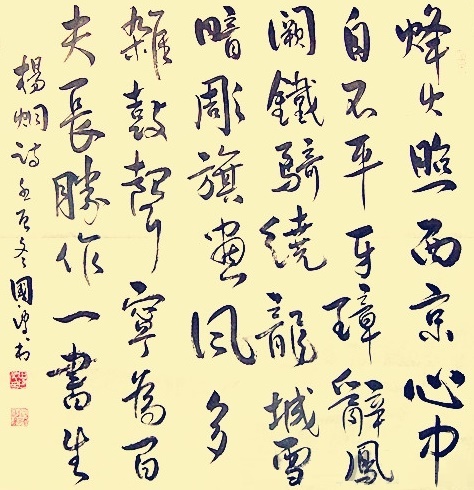 烽火照西京心中
自不平牙璋辭鳳
闕鐵騎繞龍城雪
暗彫旗畫風多
雜鼓聲寧為百
夫長勝作一書生
楊炯詩冬國